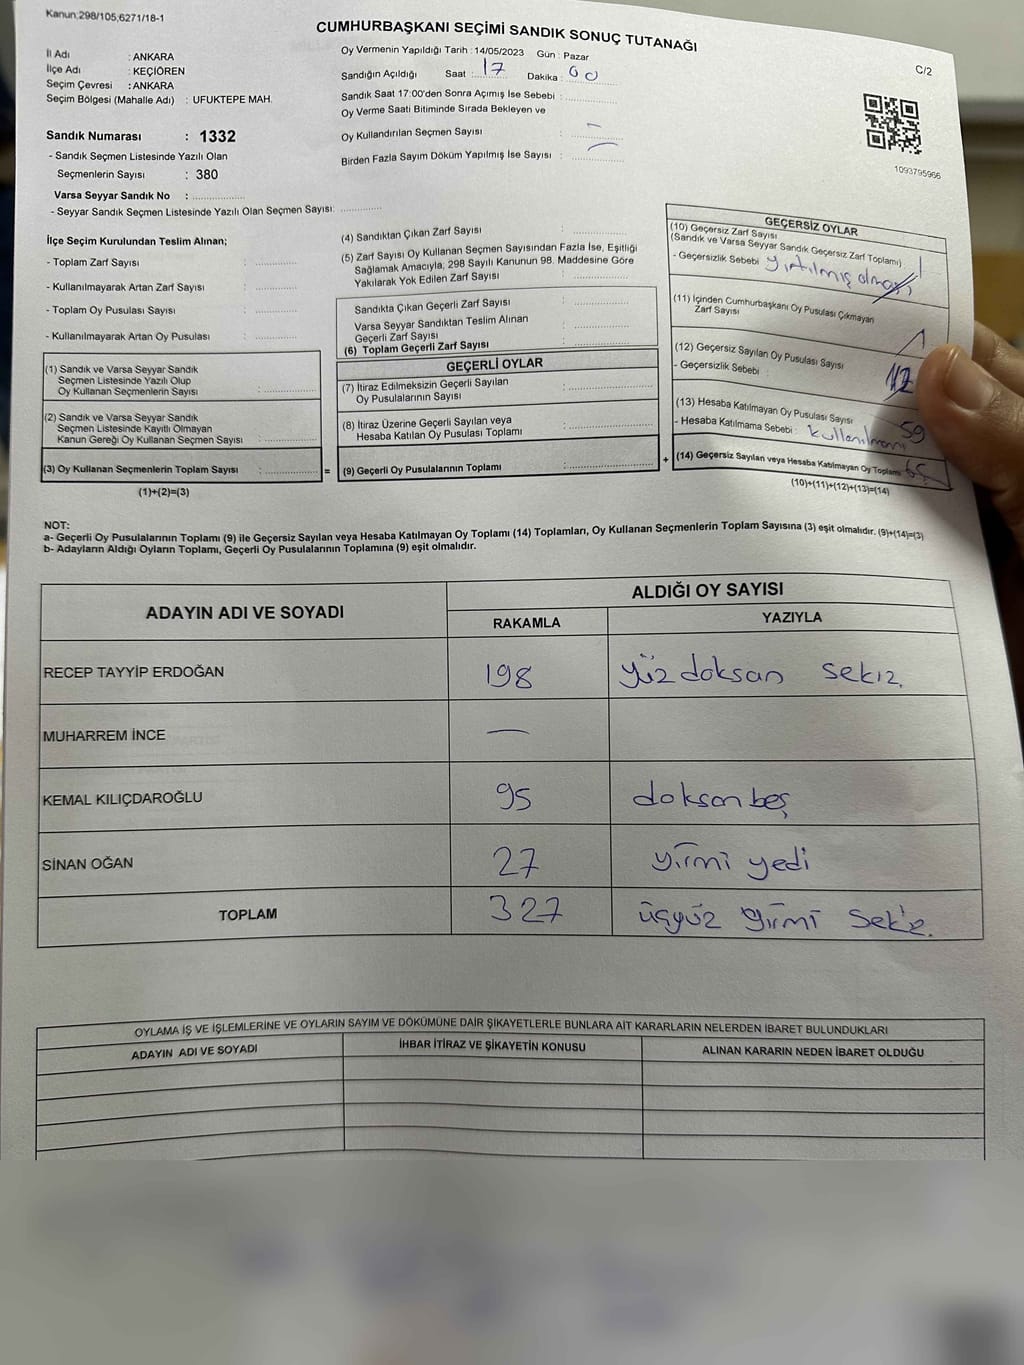 Kanun;298/105,6271/18-1
CUMHURBAŞKANI SEÇİMİ SANDIK SONUÇ TUTANAĞI
C/2
İl Adı : ANKARA
İlçe Adı : KEÇİÖREN
Seçim Çevresi : ANKARA
Seçim Bölgesi (Mahalle Adı) : UFUKTEPE MAH.
Sandık Numarası : 1332
- Sandık Seçmen Listesinde Yazılı Olan
Seçmenlerin Sayısı : 380
Varsa Seyyar Sandık No : ..................
- Seyyar Sandık Seçmen Listesinde Yazılı Olan Seçmen Sayısı: ..............
Oy Vermenin Yapıldığı Tarih : 14/05/2023 Gün : Pazar
Sandığın Açıldığı Saat : 17 Dakika : 00
Sandık Saat 17:00'den Sonra Açımış İse Sebebi : ..................
Oy Verme Saati Bitiminde Sırada Bekleyen ve
Oy Kullandırılan Seçmen Sayısı : –
Birden Fazla Sayım Döküm Yapılmış İse Sayısı : –
1093795966
İlçe Seçim Kurulundan Teslim Alınan;
- Toplam Zarf Sayısı : ..............
- Kullanılmayarak Artan Zarf Sayısı : ..............
- Toplam Oy Pusulası Sayısı : ..............
- Kullanılmayarak Artan Oy Pusulası : ..............
(1) Sandık ve Varsa Seyyar Sandık
Seçmen Listesinde Yazılı Olup
Oy Kullanan Seçmenlerin Sayısı : ..............
(2) Sandık ve Varsa Seyyar Sandık
Seçmen Listesinde Kayıtlı Olmayan
Kanun Gereği Oy Kullanan Seçmen Sayısı : ..............
(3) Oy Kullanan Seçmenlerin Toplam Sayısı : ..............
(1)+(2)=(3)
=
(4) Sandıktan Çıkan Zarf Sayısı : ..............
(5) Zarf Sayısı Oy Kullanan Seçmen Sayısından Fazla İse, Eşitliği
Sağlamak Amacıyla; 298 Sayılı Kanunun 98. Maddesine Göre
Yakılarak Yok Edilen Zarf Sayısı : ..............
Sandıkta Çıkan Geçerli Zarf Sayısı : ..............
Varsa Seyyar Sandıktan Teslim Alınan
Geçerli Zarf Sayısı : ..............
(6) Toplam Geçerli Zarf Sayısı : ..............
GEÇERLİ OYLAR
(7) İtiraz Edilmeksizin Geçerli Sayılan
Oy Pusulalarının Sayısı : ..............
(8) İtiraz Üzerine Geçerli Sayılan veya
Hesaba Katılan Oy Pusulası Toplamı : ..............
(9) Geçerli Oy Pusulalarının Toplamı : ..............
+
GEÇERSİZ OYLAR
(10) Geçersiz Zarf Sayısı
(Sandık ve Varsa Seyyar Sandık Geçersiz Zarf Toplamı)
- Geçersizlik Sebebi yırtılmış olması
(11) İçinden Cumhurbaşkanı Oy Pusulası Çıkmayan
Zarf Sayısı
(12) Geçersiz Sayılan Oy Pusulası Sayısı
- Geçersizlik Sebebi :
(13) Hesaba Katılmayan Oy Pusulası Sayısı 59
- Hesaba Katılmama Sebebi :
(14) Geçersiz Sayılan veya Hesaba Katılmayan Oy Toplamı
(10)+(11)+(12)+(13)=(14)
NOT:
a- Geçerli Oy Pusulalarının Toplamı (9) ile Geçersiz Sayılan veya Hesaba Katılmayan Oy Toplamı (14) Toplamları, Oy Kullanan Seçmenlerin Toplam Sayısına (3) eşit olmalıdır. (9)+(14)=(3)
b- Adayların Aldığı Oyların Toplamı, Geçerli Oy Pusulalarının Toplamına (9) eşit olmalıdır.
ADAYIN ADI VE SOYADI
ALDIĞI OY SAYISI
RAKAMLA YAZIYLA
RECEP TAYYİP ERDOĞAN 198 yüz doksan sekiz.
MUHARREM İNCE —
KEMAL KILIÇDAROĞLU 95 doksan beş
SİNAN OĞAN 27 yirmi yedi
TOPLAM 327 üçyüz yirmi sekiz.
OYLAMA İŞ VE İŞLEMLERİNE VE OYLARIN SAYIM VE DÖKÜMÜNE DAİR ŞİKAYETLERLE BUNLARA AİT KARARLARIN NELERDEN İBARET BULUNDUKLARI
ADAYIN ADI VE SOYADI
İHBAR İTİRAZ VE ŞİKAYETİN KONUSU
ALINAN KARARIN NEDEN İBARET OLDUĞU